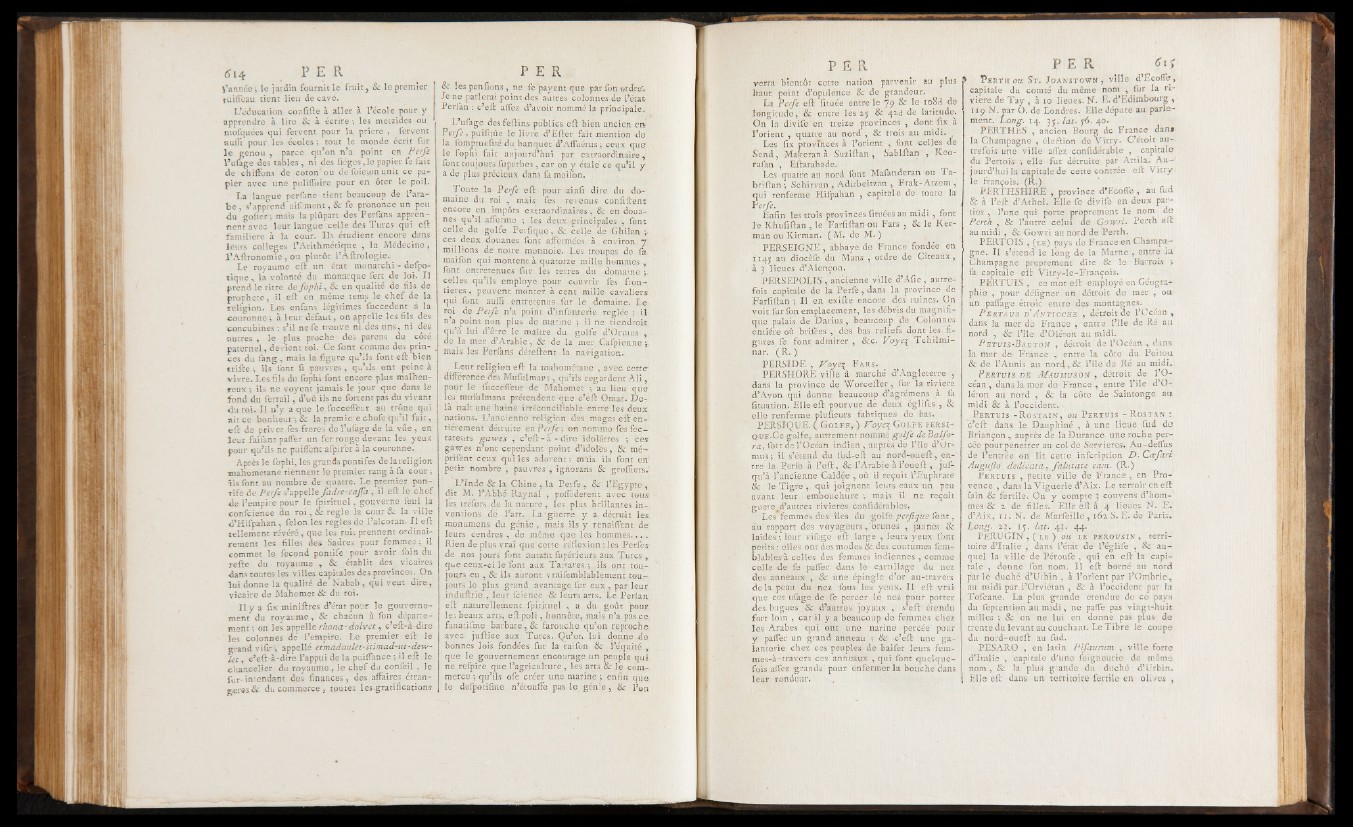 614 P E R
l'année ; le jardin fournit le fruit, & le premier
ruisseau tient lieu de cave.
L'éducation consiste à aller à l'école pour y
apprendre à lire & à écrire ; les metzides ou
mosquées qui servent pour la prière , servent
aussi pour les écoles ; tout le monde écrit sur
le genou , parce qu'on n'a point en Perse
l'usage des tables, ni des sièges, le papier se fait
de chiffons de coton ou de soie ; on unit ce pa-
pier avec une polissoire pour en ôter le poil.
La langue persane tient beaucoup de l'ara-
be , s'apprend aisément , & se prononce un peu
du gosier ; mais la plûpart des Persans appren-
nent avec leur langue celle des Turcs qui est
familiere à la cour. Ils étudient encore dans
leurs colleges l'Arithmétique , la Médecine,
l'Astronomie, ou plutôt l'Astrologie.
Le royaume est un état monarchi-despo-
tique , la volonté du monarque sert de loi. Il
prend le titre de sophi, & en qualité de fils de
prophete, il est en même tems le chef de la
religion. Les enfans légitimes succedent à la
couronne ; à leur défaut, on appelle les fils des
concubines : s'il ne se trouve ni des uns, ni des
autres , le plus proche des parens du côté
paternel, devient roi. Ce sont comme des prin-
ces du sang , mais la figure qu'ils font est bien
triste , ils sont si pauvres , qu'ils ont peine à
vivre. Les fils du sophi sont encore plus malheu-
reux ; ils ne voyent jamais le jour que dans le
fond du serrail , d'où ils ne sortent pas du vivant
du roi. Il n'y a que le successeur au trône qui
ait ce bonheur ; & la premiere chose qu'il fait,
est de priver ses freres de l'usage de la vûe, en
leur faisant passer un fer rouge devant les yeux
pour qu'ils ne puissent aspirer à la couronne.
Après le sophi, les grands pontifes de la religion
mahometane tiennent le premier rang à sa cour ;
ils sont au nombre de quatre. Le premier pon-
tife de Perse s'appelle sadre-cassa , il est le chef
de l'empire pour le spirituel , gouverne seul la
conscience du roi, & regle la cour & la ville
d'Hispahan, selon les regles de l'alcoran. Il est
tellement révéré, que les rois prennent ordinai-
rement les filles des Sadres pour femmes ; il
commet le second pontife pour avoir soin du
reste du royaume , & établit des vicaires
dans toutes les villes capitales des provinces. On
lui donne la qualité de Nabab, qui veut dire,
vicaire de Mahomet & du roi.
Il y a six ministres d'état pour le gouverne-
ment du royaume, & chacun a son départe-
ment ; on les appelle rhona-dolvet , c'est-à-dire
les colonnes de l'empire. Le premier est le
grand visir ; appellé etmadaulet-itimad-ut-dew-
let, c'est-à-dire l'appui de la puissance ; il est le
chancelier du royaume, le chef du conseil , le
sur-intendant des finances , des affaires étran-
geres & du commerce ; toutes les gratifications
P E R
& les pensions, ne se payent que par son ordre.
Je ne parlerai point des autres colonnes de l'état
Persan : c'est assez d'avoir nommé la principale.
L'usage des festins publics est bien ancien en
Perse, puisque le livre d'Ester fait mention de
la somptuosité du banquet d'Assuérus ; ceux que
le sophi fait aujourd'hui par extraordinaire,
sont toujours superbes, car on y étale ce qu'il y
a de plus précieux dans sa maison.
Toute la Perse est pour ainsi dire du do-
maine du roi , mais ses revenus consistent
encore en impôts extraordinaires, & en doua-
nes qu'il afferme ; les deux principales , sont
celle du golfe Persique, & celle de Ghilan ;
ces deux douanes sont affermées à environ 7
millions de notre monnoie. Les troupes de sa
maison qui montent à quatorze mille hommes,
sont entretenues sur les terres du domaine ;
celles qu'ils employe pour couvrir ses fron-
tieres, peuvent monter à cent mille cavaliers
qui sont aussi entretenus sur le domaine. Le
roi de Perse n'a point d'infanterie reglée ; il
n'a point non plus de marine ; il ne tiendroit
qu'à lui d'être le maître du golfe d'Ormus ,
de la mer d'Arabie, & de la mer Caspienne ;
mais les Persans détestent la navigation.
Leur religion est la mahométane , avec cette
différence des Musulmans, qu'ils regardent Ali,
pour le successeur de Mahomet ; au lieu que
les musulmans prétendent que c'est Omar. De-
là naît une haine irréconciliable entre les deux
nations. L'ancienne religion des mages est en-
tiérement détruite en Perse ; on nomme ses sec-
tateurs gawes , c'est-à-dire idolâtres ; ces
gawres n'ont cependant point d'idoles, & mé-
prisent ceux qui les adorent ; mais ils sont en
petit nombre , pauvres , ignorans & grossiers.
L'Inde & la Chine, la Perse , & l'Egypte,
dit M. l'Abbé Raynal , possederent avec tous
les trésors de la nature , les plus brillantes in-
ventions de l'art. La guerre y a détruit les
monumens du génie , mais ils y renaissent de
leurs cendres , de même que les hommes....
Rien de plus vrai que cette réflexion : les Perses
de nos jours sont autant supérieurs aux Turcs ,
que ceux-ci le sont aux Tartares ; ils ont tou-
jours eu , & ils auront vraisemblablement tou-
jours le plus grand avantage sur eux , par leur
industrie , leur science & leurs arts. Le Persan
est naturellement spirituel , a du goût pour
les beaux arts, est poli , honnête, mais n'a pas ce
fanatisme barbare, & farouche qu'on reproche
avec justice aux Turcs. Qu'on lui donne de
bonnes lois fondées sur la raison & l'équité ,
que le gouvernement encourage un peuple qui
ne respire que l'agriculture , les arts & le com-
merce ; qu'ils ose créer une marine ; enfin que
le despotisme n'étouffe pas le génie , & l'on
P E R
verra bientôt cette nation parvenir au plus
haut point d'opulence & de grandeur.
La Perse est située entre le 79 & le 108d de
longitude, & entre les 25 & 42d de latitude.
On la divise en treize provinces , dont six à
l'orient , quatre au nord , & trois au midi.
Les six provinces à l'orient , sont celles de
Send, Makeran à Suzistan , Sablistan , Koc-
rasan , Estarabade.
Les quatre au nord sont Masanderan ou Ta-
bristan ; Schirvan , Adirbeitzan , Erak-Atzem,
qui renferme Hispahan , capitale de toute la
Perse.
Enfin les trois provinces situées au midi , sont
le Khusistan , le Farsistan ou Fars , & le Ker-
man ou Kirman. (M. de M.)
PERSEIGNE, abbaye de France fondée en
1145 au diocèse du Mans , ordre de Citeaux,
à 3 lieues d'Alençon.
PERSEPOLIS, ancienne ville d'Asie, autre-
fois capitale de la Perse, dans la province de
Farsistan ; Il en existe encore des ruines. On
voit sur son emplacement, les débris du magnifi-
que palais de Darius, beaucoup de Colonnes
entière où brisées , des bas reliefs dont les fi-
gures se font admirer , &c. Voyez Tchilmi-
nar. (R.)
PERSIDE , Voyez FARS.
PERSHORE ville à marché d'Angleterre ,
dans la province de Worcester, sur la riviere
d'Avon qui donne beaucoup d'agrémens à sa
situation. Elle est pourvue de deux églises , &
elle renferme plusieurs fabriques de bas.
PERSIQUE. (GOLFE,) Voyez GOLFE PERSI-
QUE. Ce golfe, autrement nommé golfe de Balso-
ra, sort de l'Océan indien, auprès de l'île d'Or-
mus ; il s'étend du sud-est au nord-ouest, en-
tre la Perse à l'est, & l'Arabie à l'ouest , jus-
qu'à l'ancienne Caldée , où il reçoit l'Euphrate
& le Tigre , qui joignent leurs eaux un peu
avant leur embouchure ; mais il ne reçoit
guere d'autres rivieres considérables.
Les femmes des îles du golfe persique sont ,
au rapport des voyageurs, brunes , jaunes &
laides ; leur visage est large , leurs yeux sont
petits : elles ont des modes & des coutumes sem-
blables à celles des femmes indiennes, comme
celle de se passer dans le cartillage du nez
des anneaux , & une épingle d'or au-travers
de la peau du nez sous les yeux. Il est vrai
que cet usage de se percer le nez pour porter
des bagues & d'autres joyaux , s'est étendu
fort loin , car il y a beaucoup de femmes chez
les Arabes qui ont une narine percée pour
y passer un grand anneau ; & c'est une ga-
lanterie chez ces peuples de baiser leurs fem-
mes-à-travers ces anneaux , qui sont quelque-
fois assez grands pour enfermer la bouche dans
leur rondeur.
P E R 615
PERTH ou ST. JOANSTOWN , ville d'Ecosse,
capitale du comté du même nom , sur la ri-
viere de Tay , à 10 lieues. N. E. d'Edimbourg ,
119 N. par O. de Londres. Elle députe au parle-
ment. Long. 14. 35. lat. 56. 40.
PERTHES , ancien Bourg de France dans
la Champagne , élection de Vitry. C'étoit au-
trefois une ville assez considérable , capitale
du Pertois ; elle fut détruite par Attila. Au-
jourd'hui la capitale de cette contrée est Vitry
le François. (R.)
PERTHSHIRE , province d'Ecosse , au sud
& à l'est d'Athol. Elle se divise en deux par-
ties , l'une qui porte proprement le nom de
Perth , & l'autre celui de Gowri. Perth est
au midi , & Gowri au nord de Perth.
PERTOIS , (LE) pays de France en Champa-
gne. Il s'étend le long de la Marne , entre la
Champagne proprement dite & le Barrois ;
sa capitale est Vitry-le-François.
PERTUIS , ce mot est employé en Géogra-
phie , pour désigner un détroit de mer , ou
un passage étroit entre des montagnes.
PERTUIS D'ANTIOCHE , détroit de l'Océan ,
dans la mer de France , entre l'île de Ré au
nord , & l'île d'Oléron au midi.
PERTUIS-BRETON , détroit de l'Océan , dans
la mer de France , entre la côte du Poitou
& de l'Aunis au nord, & l'île de Ré au midi.
PERTUIS DE MAUMUSON , détroit de l'O-
céan , dans la mer de France , entre l'île d'O-
léron au nord , & la côte de Saintonge au
midi & à l'occident.
PERTUIS-ROSTAIN, ou PERTUIS-ROSTAN :
c'est dans le Dauphiné , à une lieue sud de
Briançon , auprès de la Durance une roche per-
cée pour penetrer au col de Servieres. Au-dessus
de l'entrée on lit cette inscription D. Cæsari
Augusto dedicata, salutate eam. (R.)
PERTUIS , petite ville de France, en Pro-
vence , dans la Viguerie d'Aix. Le terroir en est
sain & fertile. On y compte 3 couvens d'hom-
mes & 2 de filles. Elle est à 4 lieues N. E.
d'Aix, 11. N. de Marseille , 162 S. E. de Paris.
Long. 23. 15. lat. 43. 44.
PERUGIN, (LE) ou LE PEROUSIN , terri-
toire d'Italie , dans l'état de l'église , & au-
quel la ville de Pérouse , qui en est la capi-
tale , donne son nom. Il est borné au nord
par le duché d'Urbin , à l'orient par l'Ombrie,
au midi par l'Orviétan , & à l'occident par la
Toscane. La plus grande étendue de ce pays
du septentrion au midi , ne passe pas vingt-huit
milles ; & on ne lui en donne pas plus de
trente du levant au couchant. Le Tibre le coupe
du nord-ouest au sud.
PESARO , en latin Pisaurum , ville forte
d'Italie , capitale d'une seigneurie de même
nom , & la plus grande du duché d'Urbin.
Elle est dans un territoire fertile en olives ,